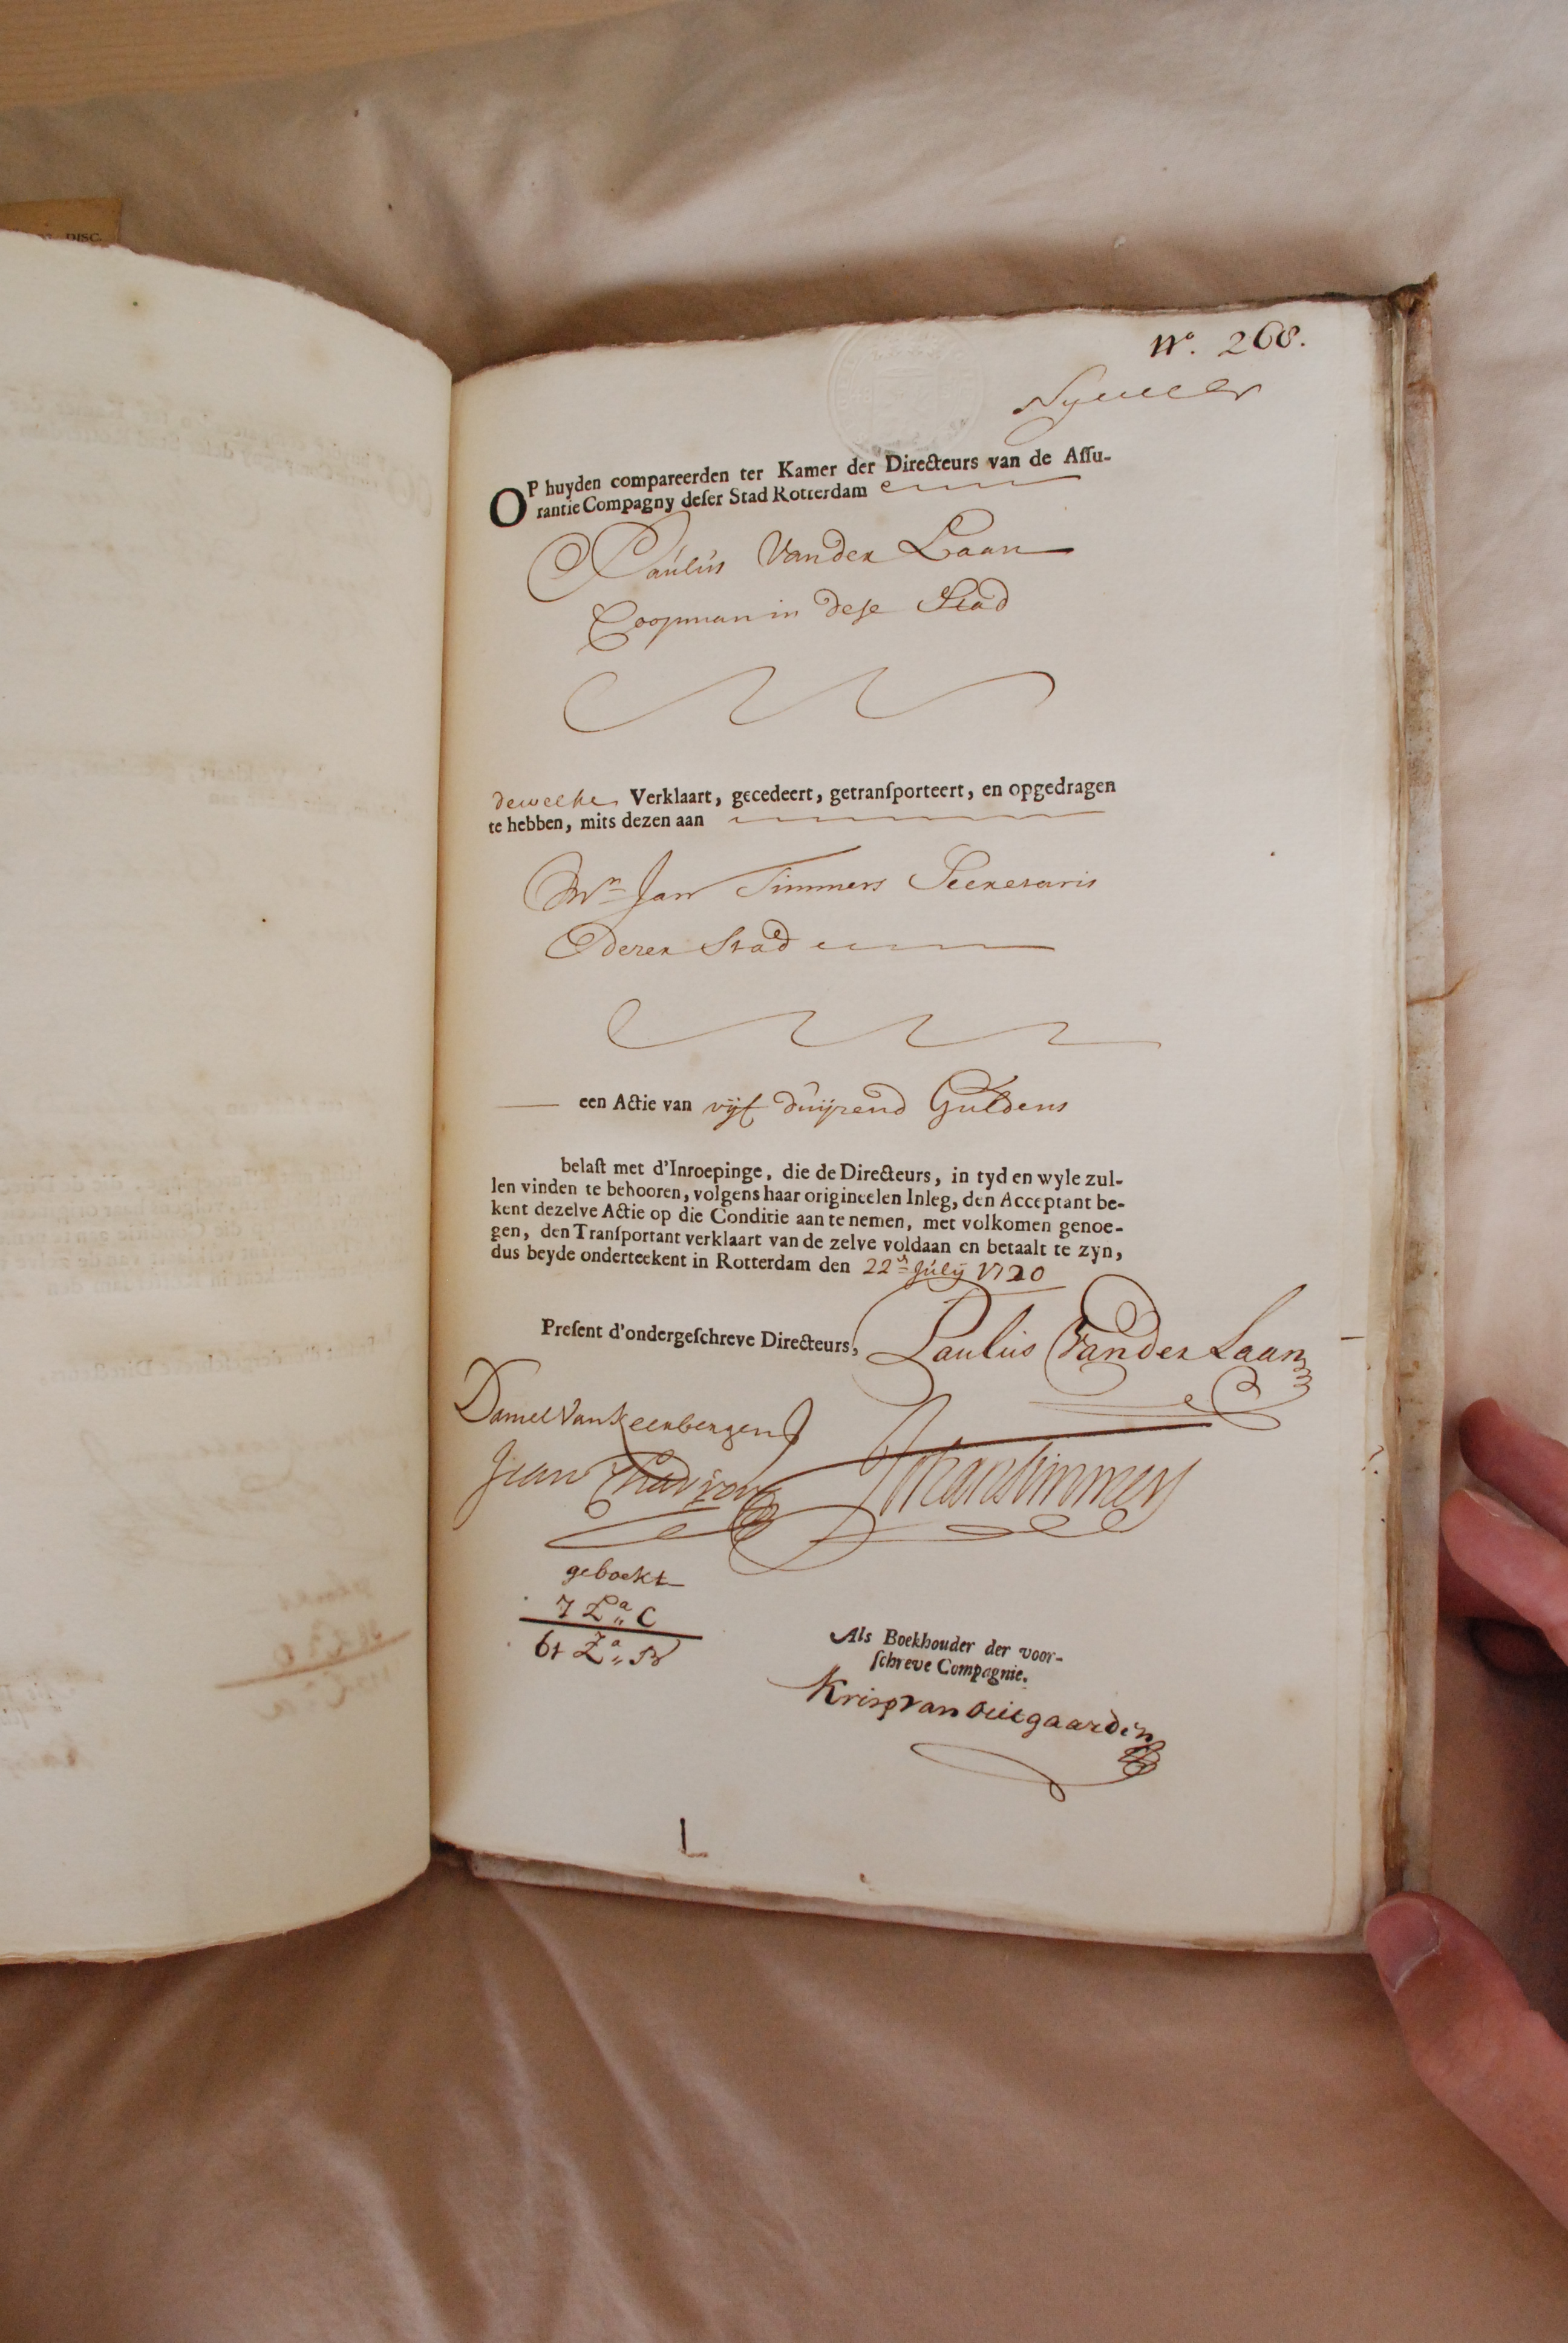 DISC.
N°. 268.
OP huyden compareerden ter Kamer der Directeurs van de Assu-
rantie Compagny deser Stad Rotterdam
Paulus Vander Laan
Coopman in dese Stad
dewelke Verklaart, gecedeert, getransporteert, en opgedragen
te hebben, mits dezen aan
Mr. Jan Timmers Secretaris
dezer Stad
een Actie van vijf duijzend Guldens
belast met d'Inroepinge, die de Directeurs, in tyd en wyle zul-
len vinden te behooren, volgens haar origineelen Inleg, den Acceptant be-
kent dezelve Actie op die Conditie aan te nemen, met volkomen genoe-
gen, den Transportant verklaart van de zelve voldaan en betaalt te zyn,
dus beyde onderteekent in Rotterdam den 22e July 1720
Present d'ondergeschreve Directeurs, Paulus Vander Laan
Daniel Van Keerbergen
Jean Johan Timmers
geboekt
7 La C
61 La B
Als Boekhouder der voor-
schreve Compagnie.
Krisp van